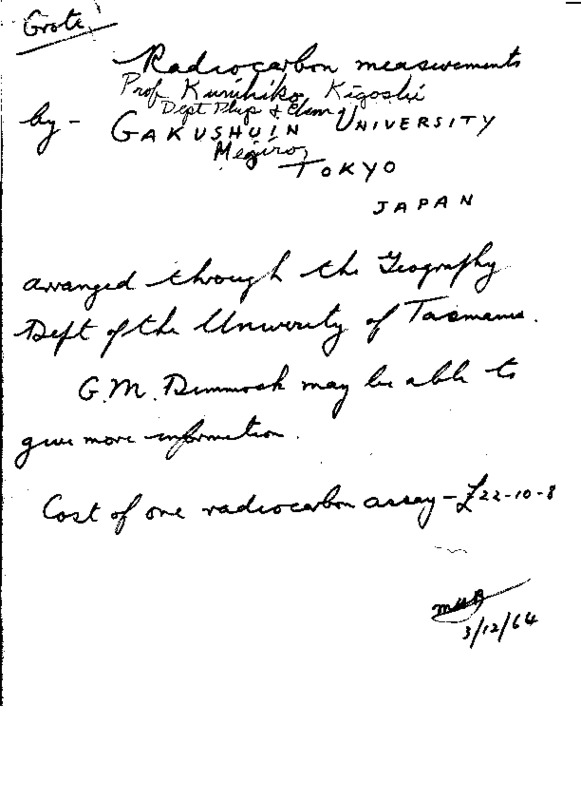 Grote
Radiocarbon measurements
Prof. Kunihiko Kigoshi
Dept Phys & Chem
by - GAKUSHUIN UNIVERSITY
Mejiro,
TOKYO
JAPAN
arranged through the Geography
Dept of the University of Tasmania.
G.M. Dimmock may be able to
give more information.
Cost of one radiocarbon assay - £22-10-8
3/12/64